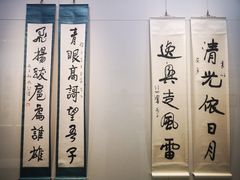 青光依日月
逸興走風雷
青眼高謌望吾子
飛揚跋扈為誰雄